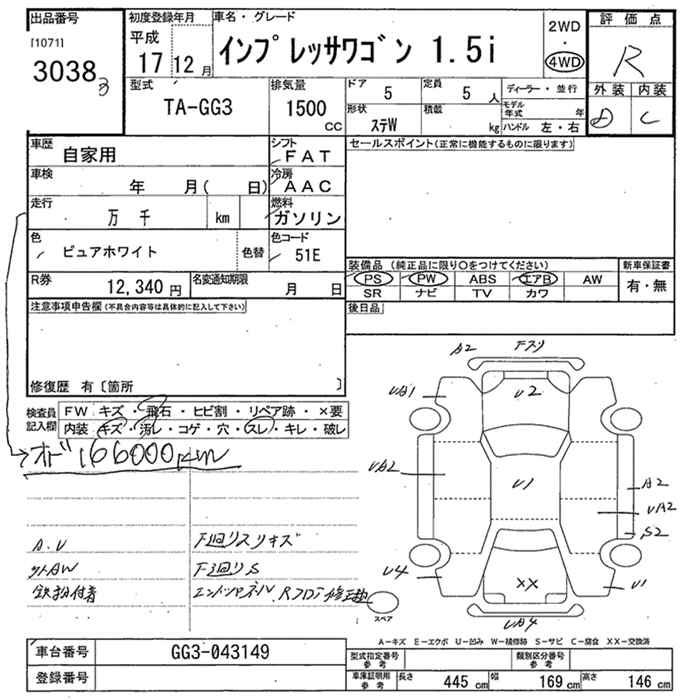 出品番号 初度登録年月 車名・グレード 2WD 評価点
[1071] 平成 インプレッサワゴン 1.5i ・ R
3038 17 12月 4WD 外装 内装
型式 排気量 ドア 定員 ディーラー・並行 D C
TA-GG3 1500 cc 5 5 人 モデル年式 年
形状 積載 ハンドル 左・右
ステW kg
車歴 自家用 シフト FAT セールスポイント(正常に機能するものに限ります)
車検 年 月( 日) 冷房 AAC
走行 万 千 km 燃料 ガソリン
色 ピュアホワイト 色替 色コード 51E
装備品(純正品に限り○をつけてください) 新車保証書
R券 12,340 円 名変通知期限 月 日 PS PW ABS エアB AW 有・無
SR ナビ TV カワ
注意事項申告欄(不具合内容等は具体的に記入して下さい) 後日品
修復歴 有〔箇所 〕
検査員記入欄 FW キズ・飛石・ヒビ割・リペア跡・×要
内装 キズ・汚レ・コゲ・穴・スレ・キレ・破レ
オド 166000km
A2 Fスリ
UA1 U2
UA2 U1 A2
UA2
S2
U4 XX U1
UA4
A.U F廻りスリキズ
外AW F廻りS
鉄粉付着 エンドパネル、Rフロア修正
スペア
A-キズ E-エクボ U-凹み W-補修跡 S-サビ C-腐食 XX-交換済
車台番号 GG3-043149 型式指定番号 参考 類別区分番号 参考
登録番号 車庫証明用 参考 長さ 445 cm 幅 169 cm 高さ 146 cm